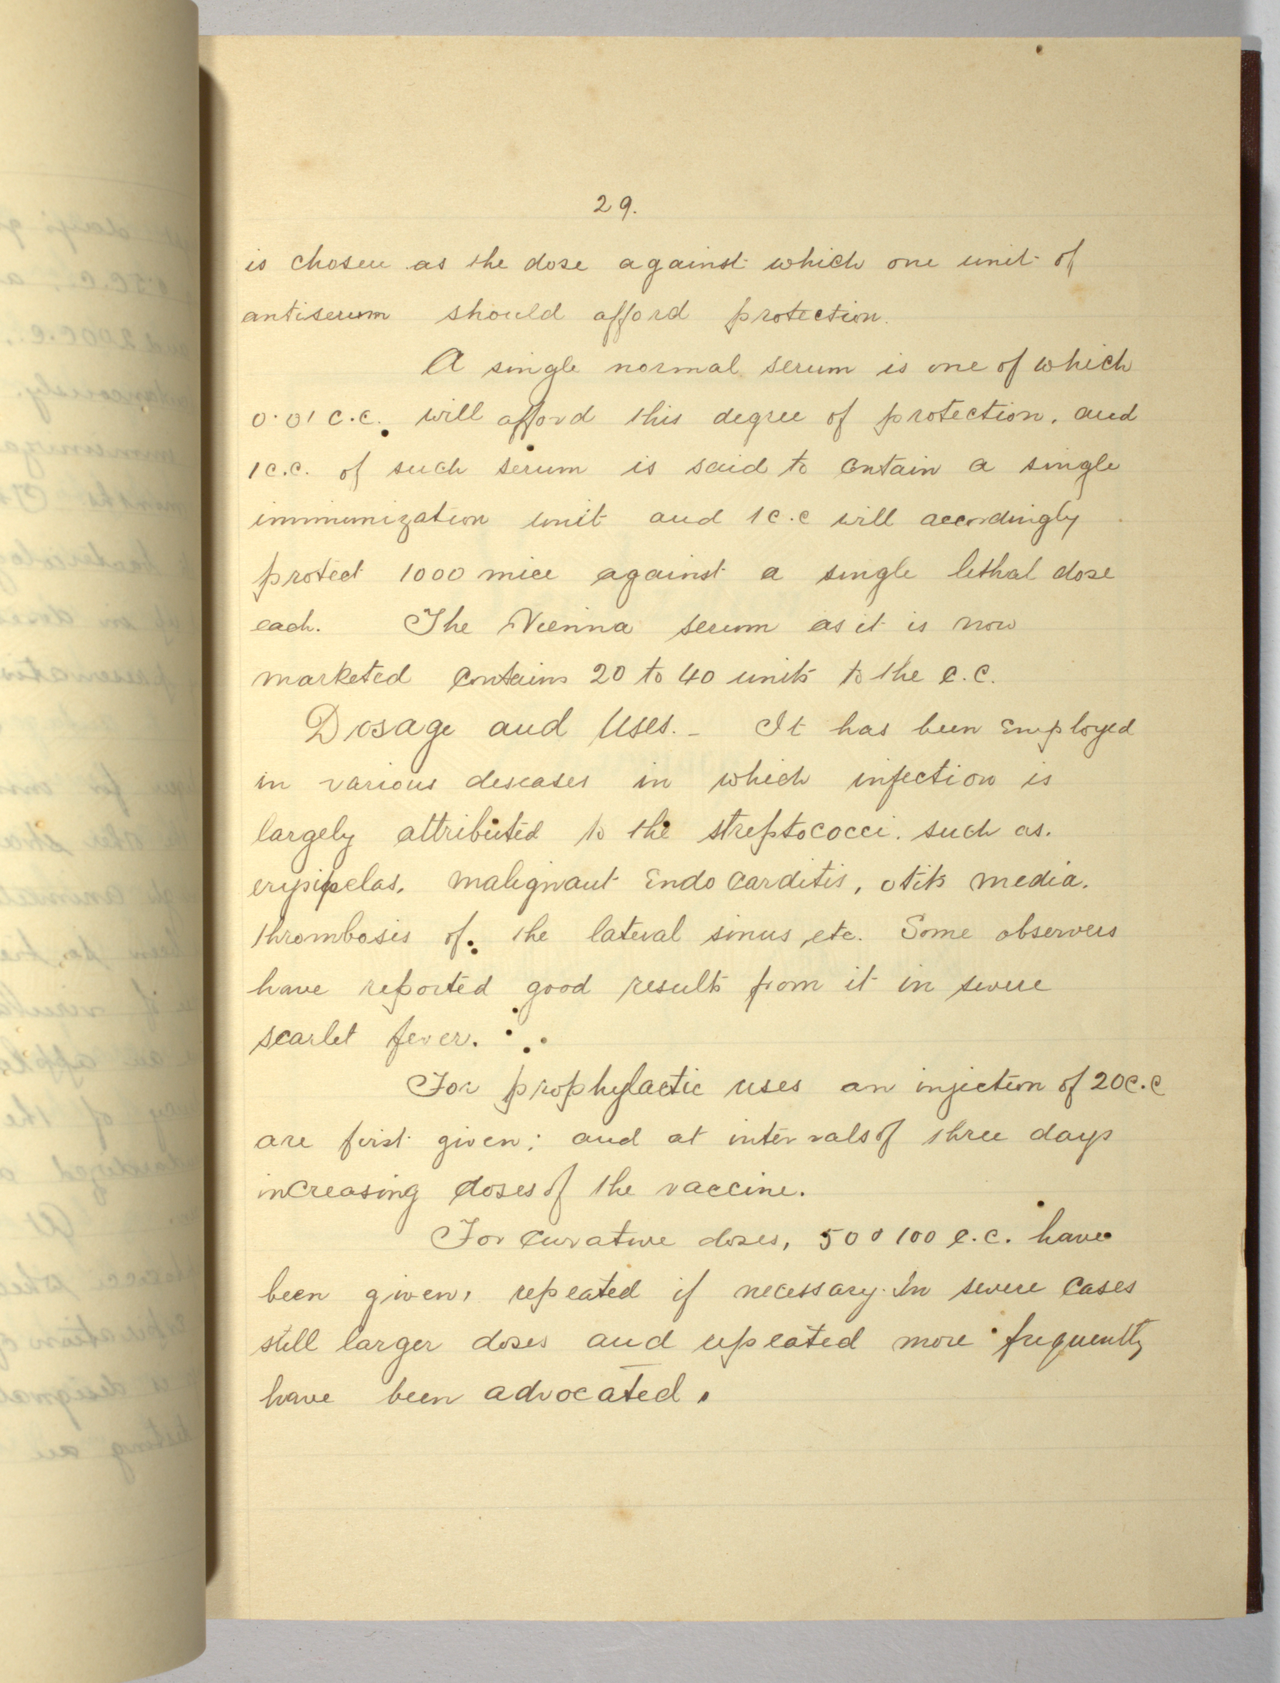 29.
is chosen as the dose against which one unit of
antiserum should afford protection.
A single normal serum is one of which
0.01 c.c. will afford this degree of protection, and
1 c.c. of such serum is said to contain a single
immunization unit and 1 c.c will accordingly
protect 1000 mice against a single lethal dose
each. The Vienna serum as it is now
marketed contains 20 to 40 units to the c.c.
Dosage and Uses. - It has been Employed
in various deseases in which infection is
largely attributed to the streptococci. such as.
erypipelas, malignant Endo carditis, otitis media.
thrombosis of the lateral sinus, etc. Some observers
have reported good results from it in severe
scarlet fever.
For prophylactic uses an injection of 20 c.c
are first given; and at intervals of three days
increasing doses of the vaccine.
For curative doses, 50 100 c.c. have
been given, repeated if necessary. In severe cases
still larger doses and repeated more frequently
have been advocated.